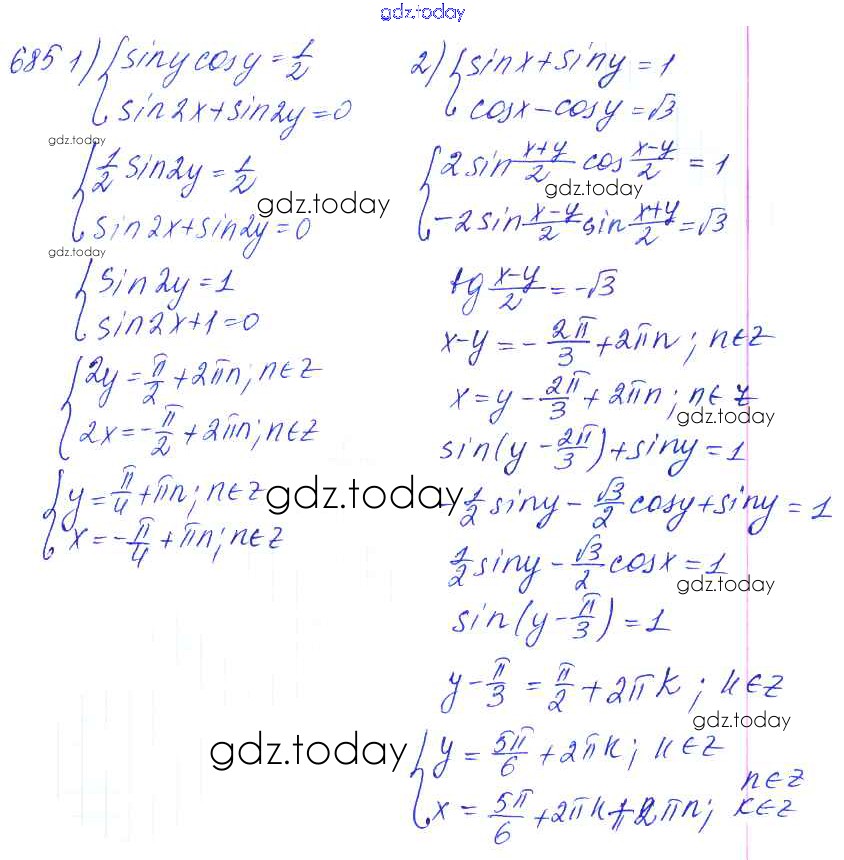 gdz.today
685 1) { sin y cos y = 1/2
sin 2x + sin 2y = 0
gdz.today
{ 1/2 sin 2y = 1/2
sin 2x + sin 2y = 0
gdz.today
gdz.today
{ sin 2y = 1
sin 2x + 1 = 0
{ 2y = π/2 + 2πn; n∈Z
2x = -π/2 + 2πn; n∈Z
{ y = π/4 + πn; n∈Z
x = -π/4 + πn; n∈Z
gdz.today
2) { sin x + sin y = 1
cos x - cos y = √3
{ 2 sin (x+y)/2 cos (x-y)/2 = 1
gdz.today
-2 sin (x-y)/2 sin (x+y)/2 = √3
tg (x-y)/2 = -√3
x-y = - 2π/3 + 2πn; n∈Z
x = y - 2π/3 + 2πn; n∈Z
gdz.today
sin(y - 2π/3) + sin y = 1
- 1/2 sin y - √3/2 cos y + sin y = 1
1/2 sin y - √3/2 cos x = 1
gdz.today
sin(y - π/3) = 1
y - π/3 = π/2 + 2πk; k∈Z
gdz.today
gdz.today
{ y = 5π/6 + 2πk; k∈Z
x = 5π/6 + 2πk + 2πn; n∈Z k∈Z